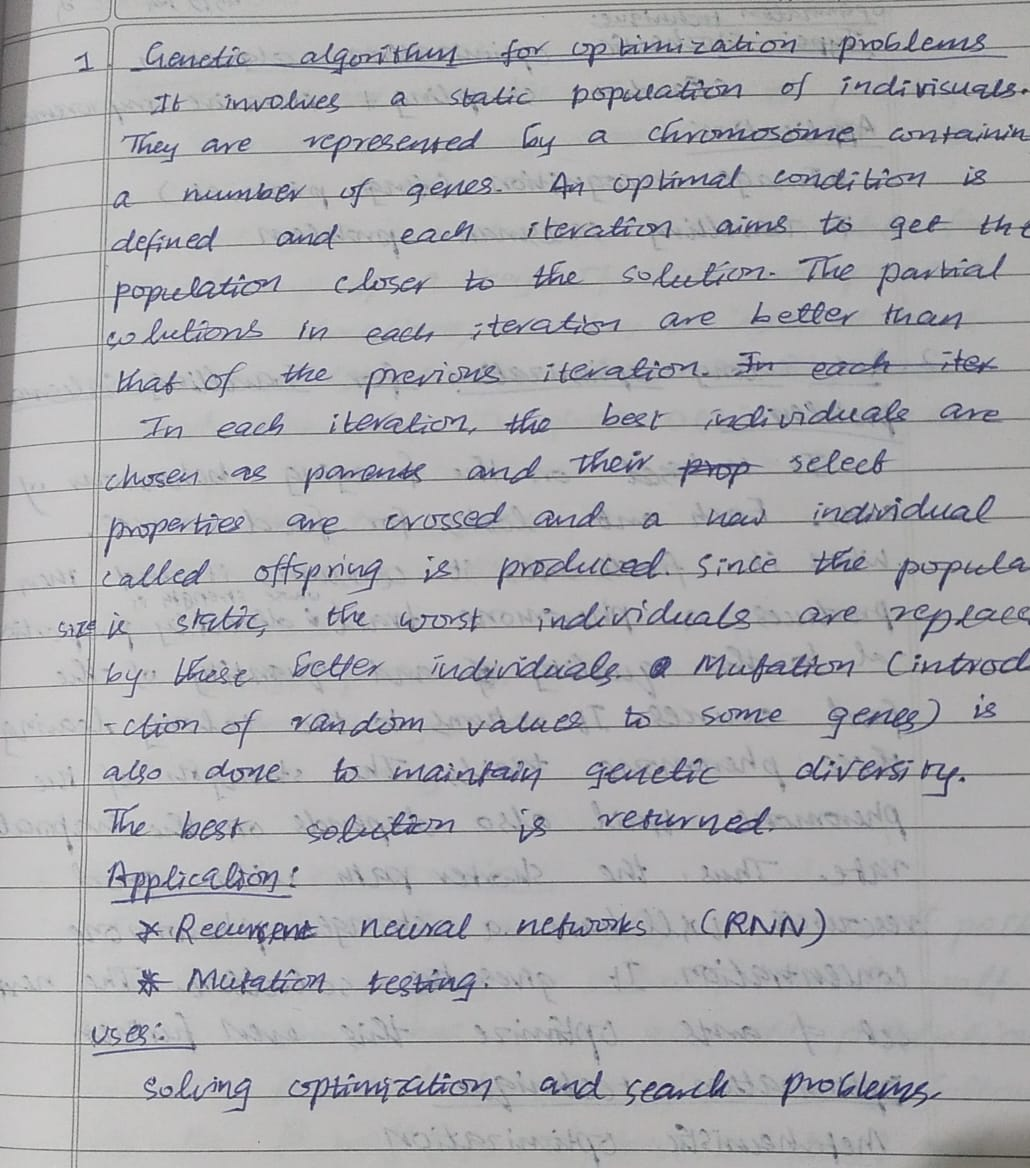 1. Genetic algorithm for optimization problems
It involves a static population of indivisuals.
They are represented by a chromosome containin
a number of genes. An optimal condition is
defined and each iteration aims to get the
population closer to the solution. The partial
solutions in each iteration are better than
that of the previous iteration. In each iter
In each iteration, the best individuals are
chosen as parents and their prop select
properties are crossed and a new individual
called offspring is produced. Since the popula
size is static, the worst individuals are replace
by these better individuals. Mutation (introd
-ction of random values to some genes) is
also done to maintain genetic diversity.
The best solution is returned.
Application:
* Recurrent neural networks (RNN)
* Mutation testing.
Uses:
solving optimization and search problems.